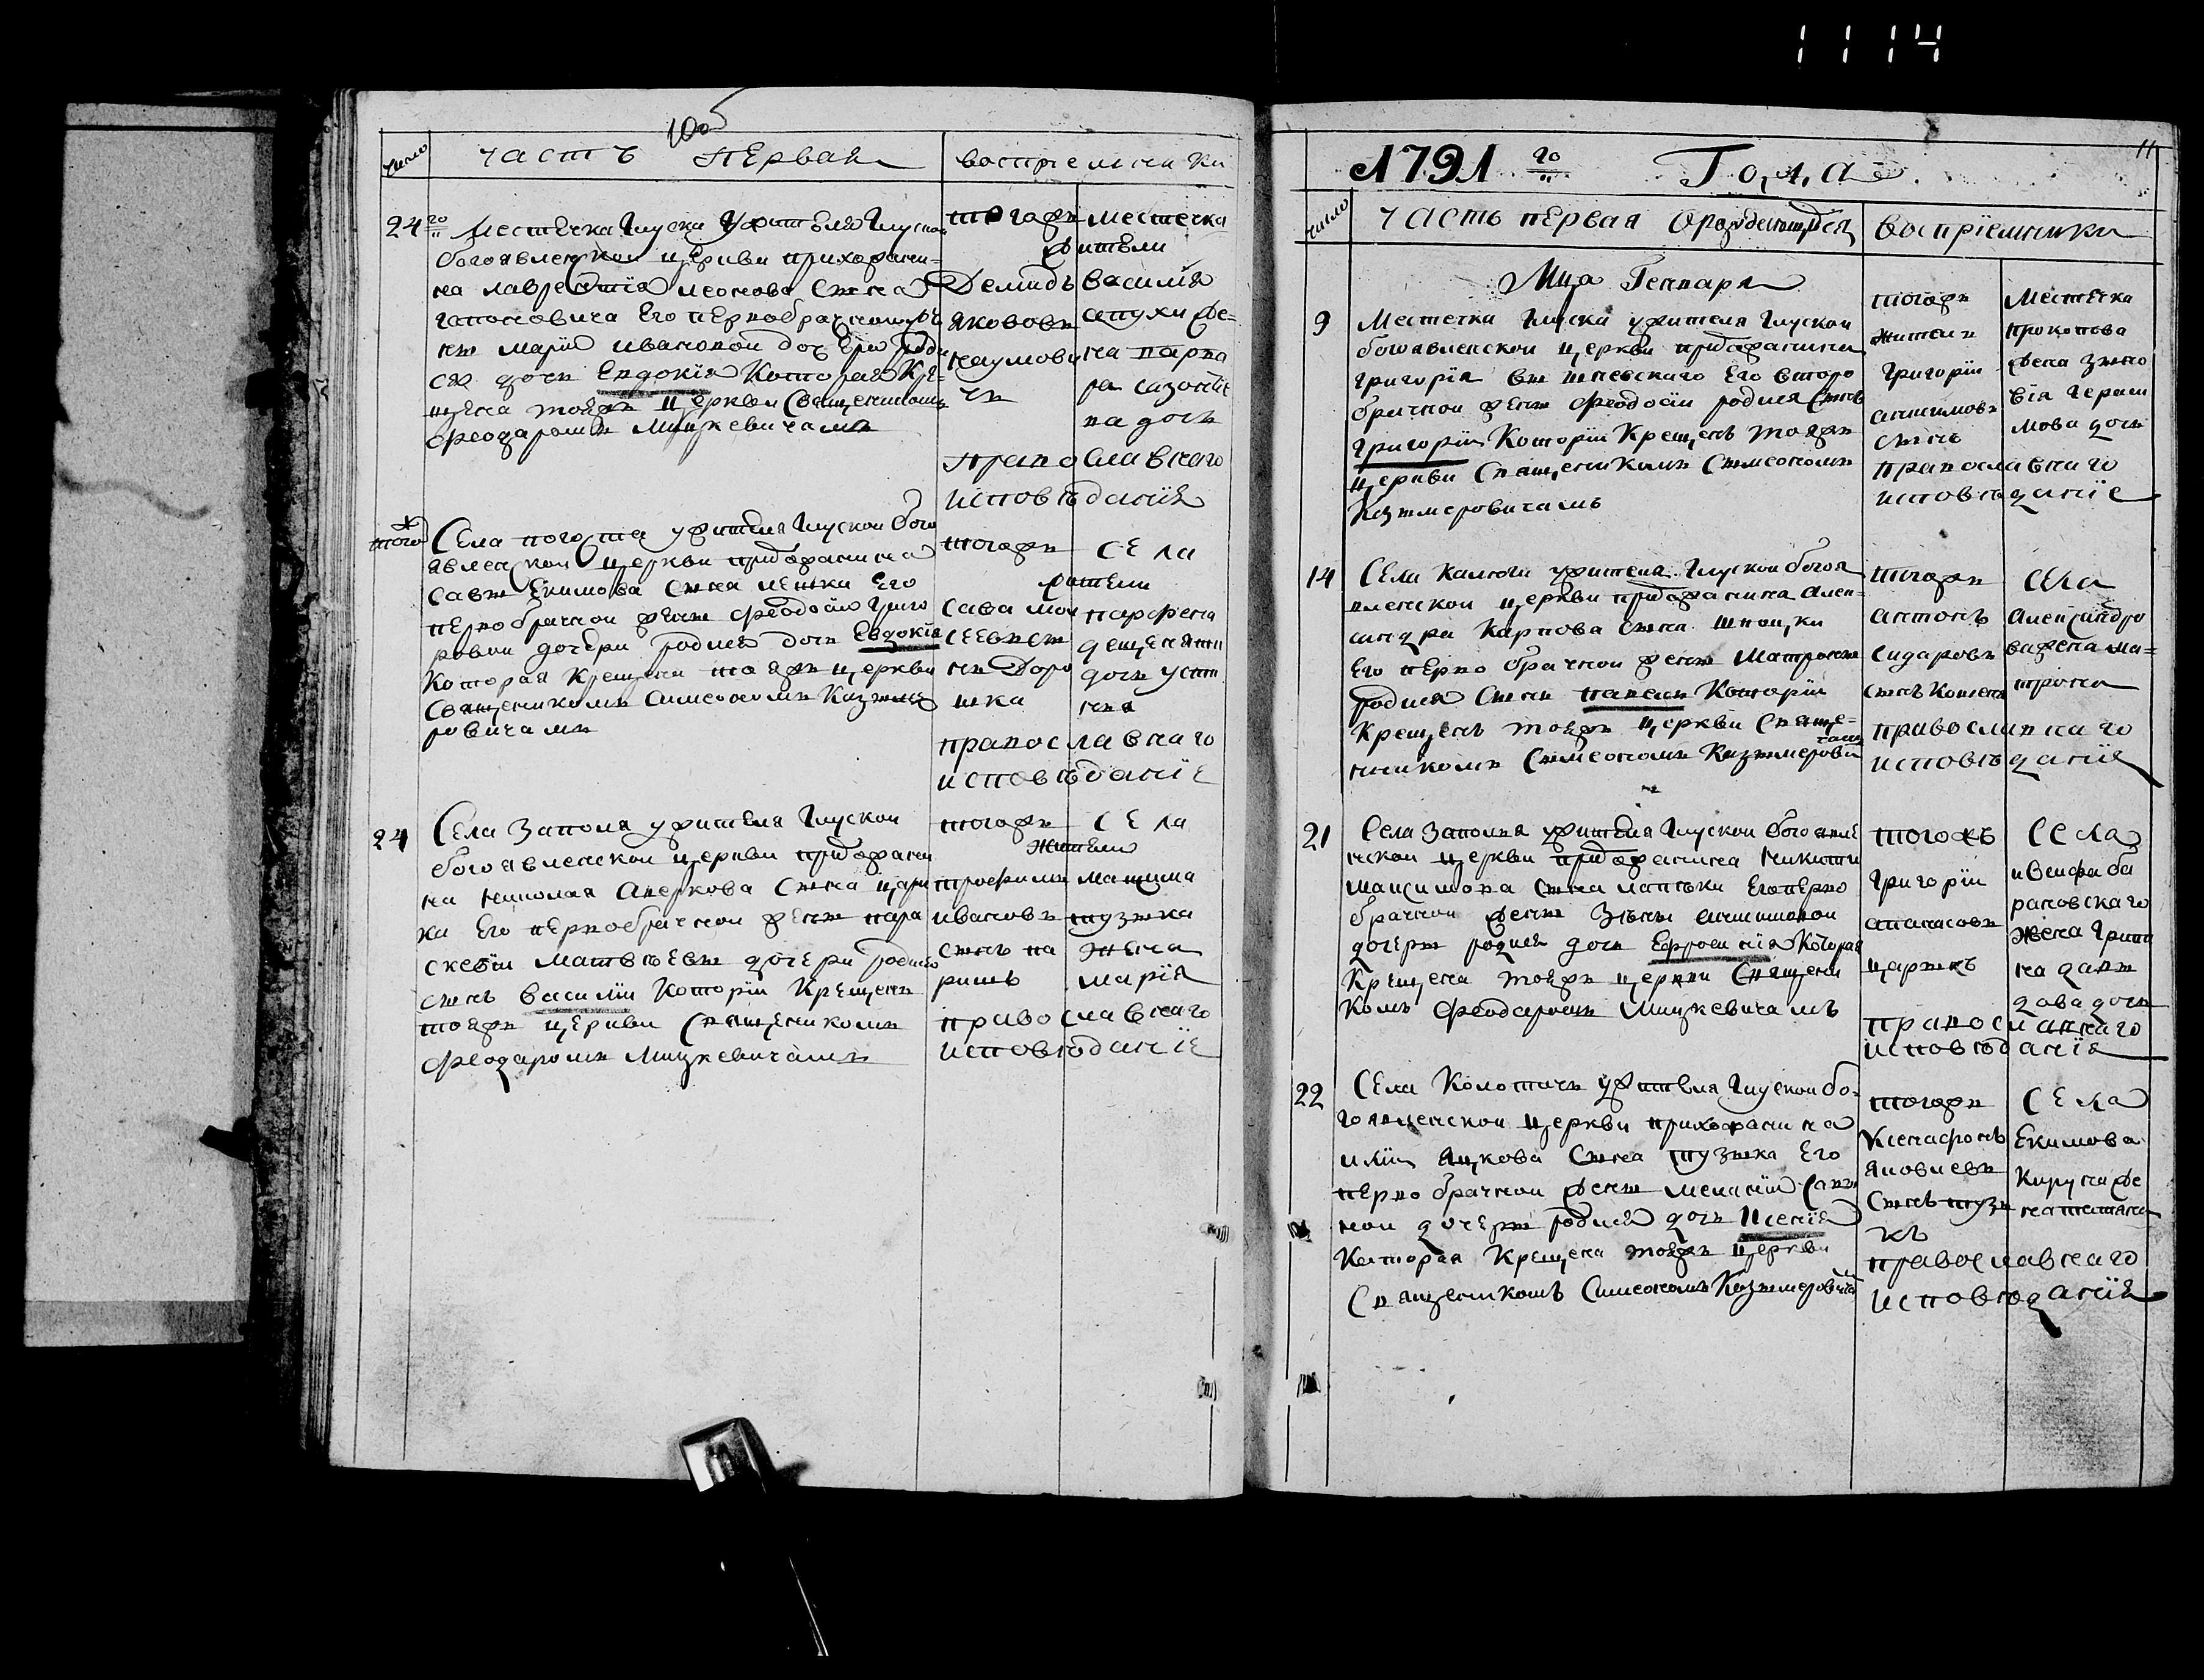 1114
10об
число
часть первая
восприемники
24го
Местечка Глуска ужителя Глуской
богоявленской церкви прихожани-
на лаврентія леонова сына
гапоновича его первобрачной
жены маріи ивановой дочери роди
ся дочь Евдокія которая кре-
щена тояжъ церкви священикомъ
феодаромъ Мицкевичамъ
тогожъ местечка
жители
Демидъ
Якововъ
наумови
чъ
василія
апухи же-
на варва
ра сазоно
ва дочь
православнаго
исповѣданія
того
Села погоста ужителя Глуской бого
явленской церкви прихожанина
савы Екимова сына его
первобрачной жены феодосіи григо
ровой дочери родися дочь Евдокія
которая крещена тояжъ церкви
священикомъ Симеономъ Казыме
ровичамъ
тогожъ села
жители
сава мои
сеевъ сы
нъ Доро
шка
парфена
дещеняти
дочь усти
ння
православнаго
исповѣданіе
24
Села Заполя ужителя Глуской
богоявленской церкви прихожани
на николая Аверкова сына цари
ка его первобрачной жены пара
скевіи Матвѣевы дочери родися
сынъ василіи которіи крещенъ
тояжъ церкви священикомъ
феодаромъ Мицкевичамъ
тогожъ села
жители
трофимъ
ивановъ
сынъ ца
рикъ
мацима
тузыка
жена
марія
православнаго
исповѣданіе
11
1791го Года
число
Часть первая Ораждающихся
воспріемники
Мца Генваря
9
Местечка Глуска ужителя Глуской
богоявленской церкви прихожанина
григорія его второ
брачной жены феодосіи родися сынъ
григоріи которіи крещенъ тояжъ
церкви священикомъ Сымеономъ
Казымеровичамъ
тогожъ местечка
жители
григоріи
анисимовъ
сынъ
прокопова
жена зыно
вія гераси
мова дочь
православнаго
исповѣданіе
14
Села Калюги ужителя Глуской богоя
вленской церкви прихожанина алек-
сандра Карпова сына шпоцки
его перво брачной жены Матроны
родися сынъ павелъ которіи
крещенъ тояжъ церкви свяще-
никомъ Сымеономъ Казымерови
чамъ
тогожъ села
антонъ
сидаровъ
сынъ
александро
ва жена ма-
трона
православнаго
исповѣданія
21
Села Заполля ужителя Глуской богоявле
нской церкви прихожанина никиты
максимова сына лаптыки его перво
брачной жены Зѣнъи анисимовой
дочеры родися дочь Ефросинія которая
крещена тояжъ церкви священи
комъ Феодаромъ Мицкевичамъ
тогожъ села
григоріи
апанасовъ
царыкъ
ба
рановскаго
жена Грипи
на давы
дава дочь
православнаго
исповѣданія
22
Села Колотичъ ужителя Глуской бо-
гоявленской церкви прихожанина
иліи Яцкова сына тузыка его
перво брачной жены меланіи
ной дочеры родися дочь Ксенія
которая крещена тояжъ церкви
священикомъ Симеономъ Казымеровичамъ
тогожъ села
Ксенафонъ
яковлевъ
сынъ тузы
къ
Екимова
же
на татьяна
православнаго
исповѣданія